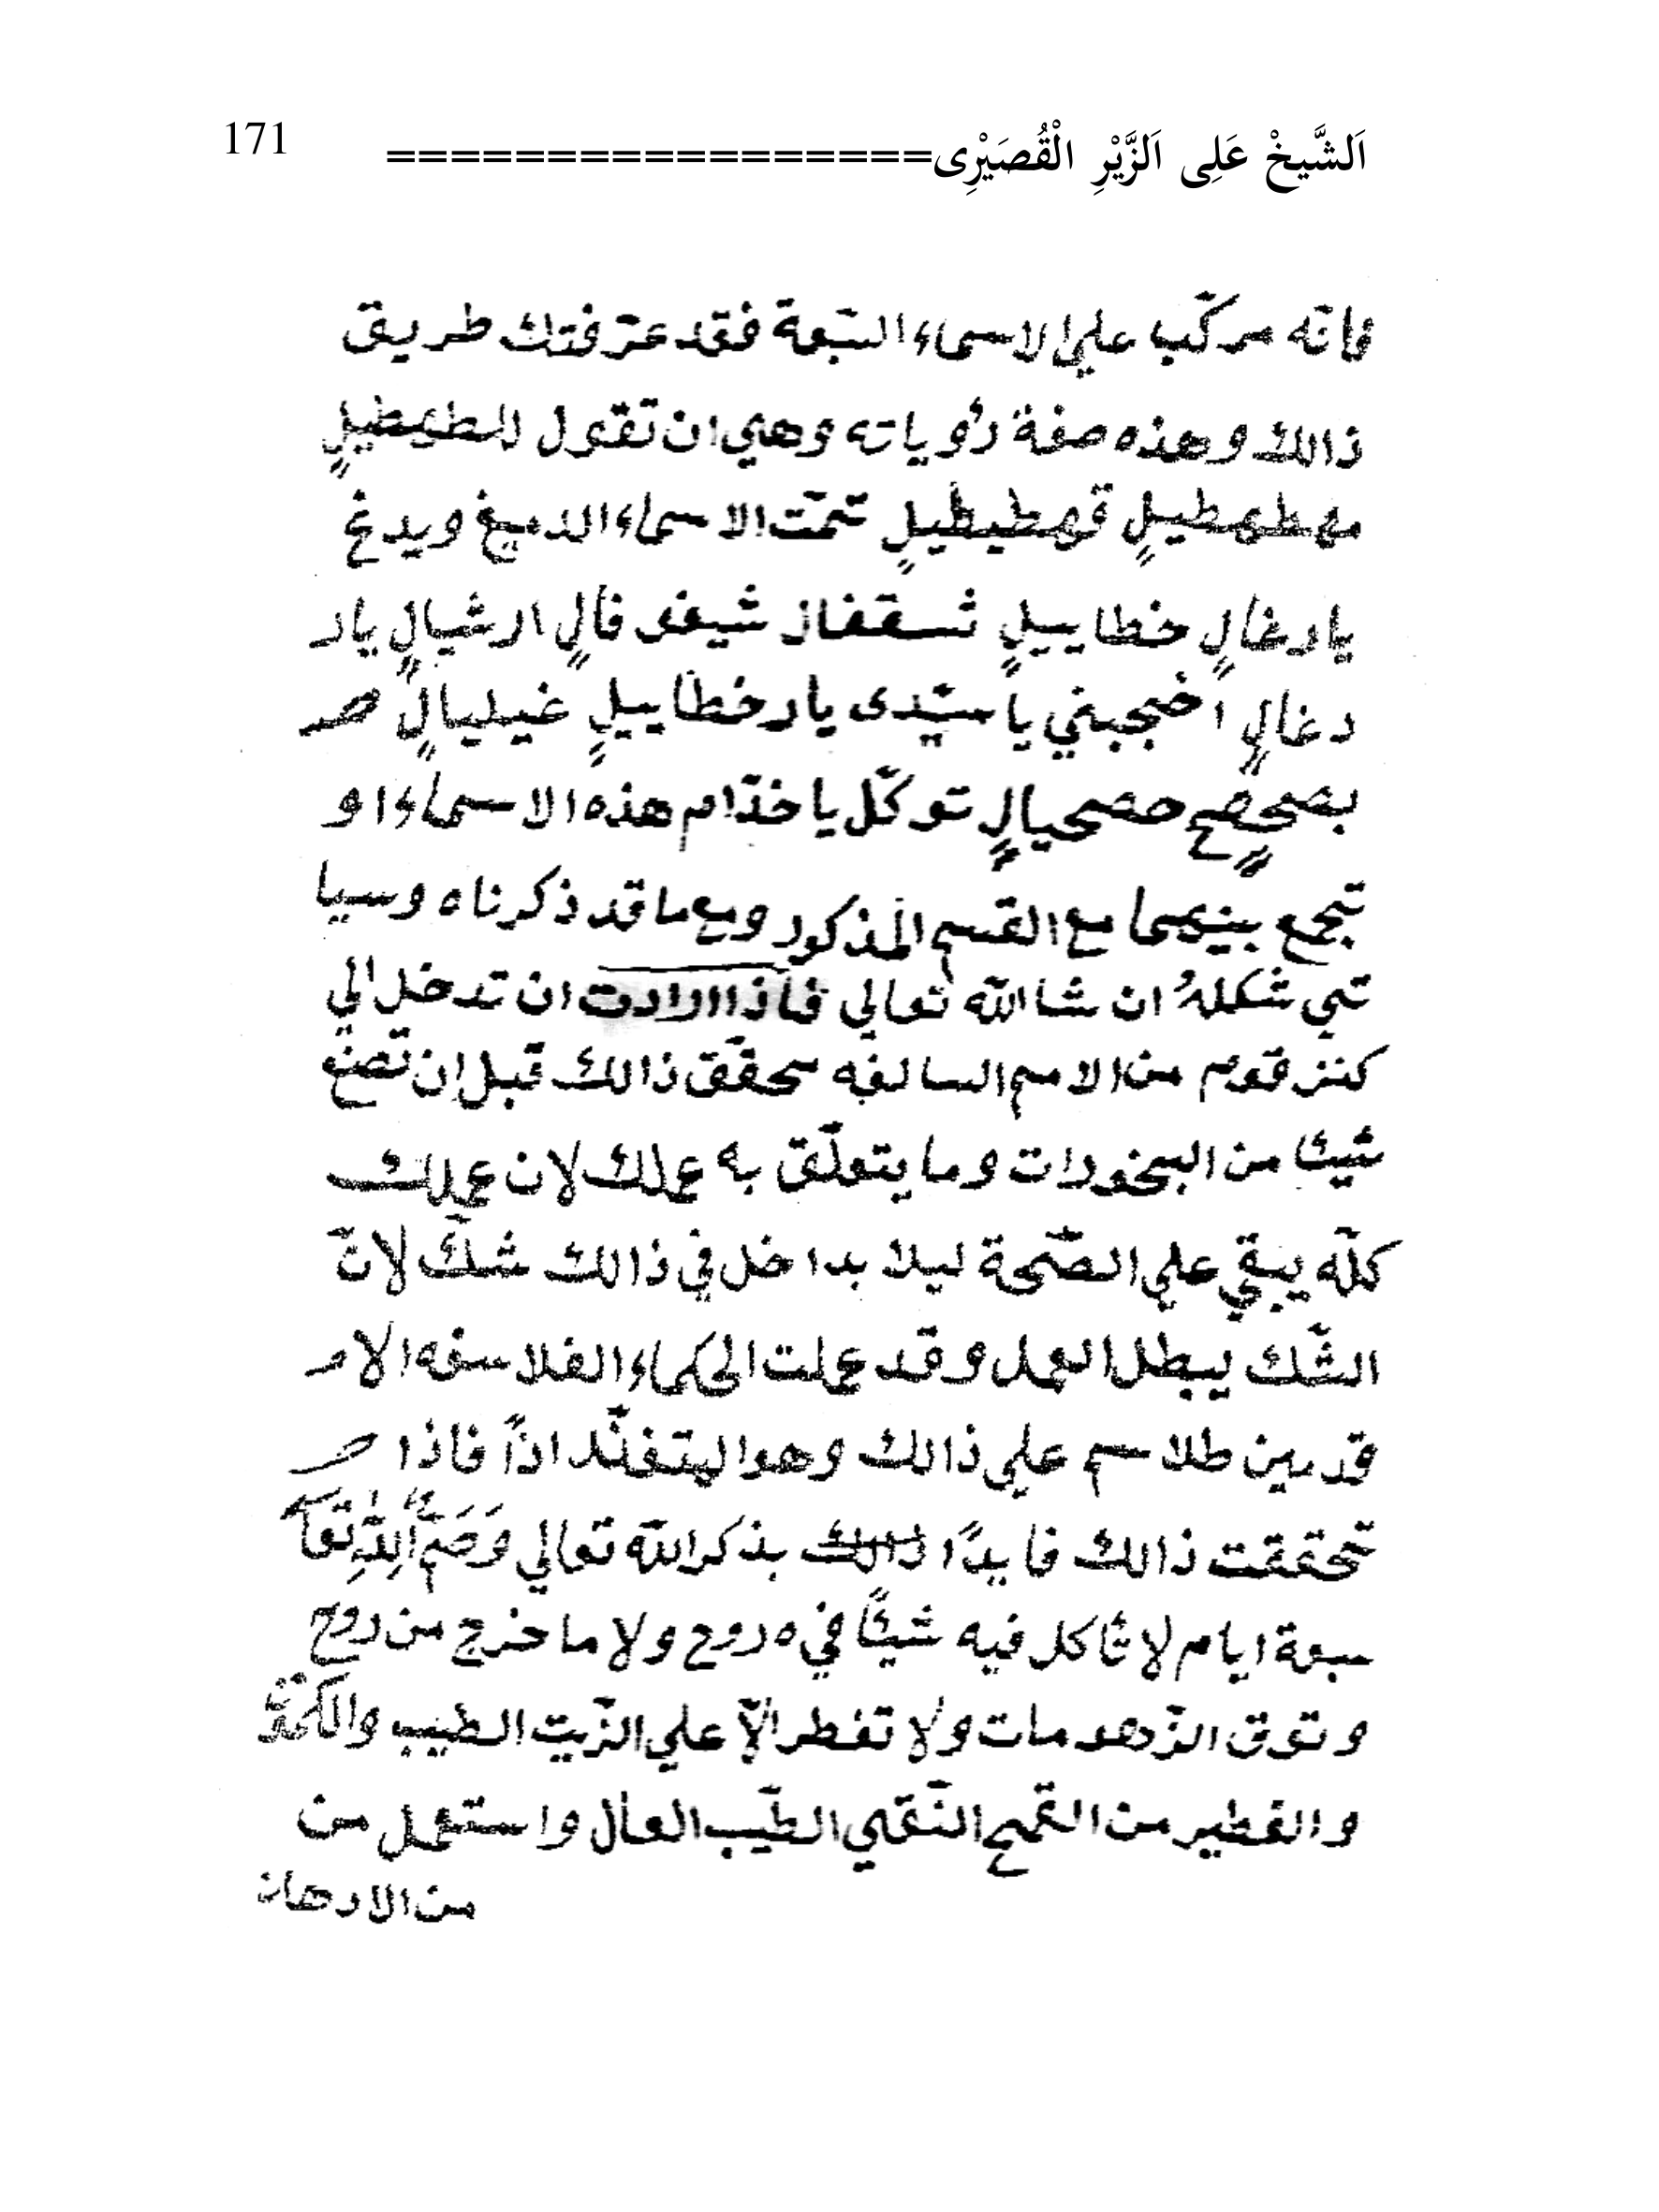 اَلشَّيخْ عَلِى اَلزَّيْرِ الْقُصَيْرِى================= 171
فانّه مركّب على الاسماء السّبعة فقد عرّفتك طريق
ذالك وهذه صفة رؤياته وهي ان تقول للطهطيلٍ
مهطهطيلٍ قهطيطيلٍ تمّت الاسماء الدميغ ويدغ
يادغالٍ خطاييلٍ ثسقفاز شيغى فالٍ ارشيالٍ ياد
دغالٍ اخجبني يا سيّدى يادخطاييلٍ غيليالٍ صد
بصحصح حصحيالٍ توكّل يا خدّام هذه الاسماء او
تجمع بينهما مع القسم المذكور ومع ما قد ذكرناه وسيا
تي شكلهُ ان شا الله تعالي فاذا ارادت ان تدخل الي
كنز قوم من الامم السالفه تحقّق ذالك قبل ان تصنع
شيئا من البخورات وما يتعلّق به عملك لان عملك
كلّه يبقي علي الصّحة ليلا بداخل في ذالك شكّ لانّ
الشّك يبطل العمل وقد عملت الحكماء الفلاسفه الام
قدمين طلاسم علي ذالك وهو اليتفنّد اذاً فاذا
تحققت ذالك فايدًا ذالك بذكر الله تعالي وَصَمّ لِلّهِ تعا
سبعة ايام لا تأكل فيه شيئًا في ه روح ولا ما خرج من روح
وتوق الزّهدمات ولا تفطر الاّ علي الزّيت الطيب
والفطير من القمح النّقي الطّيب العال واستعمل من
من الادهان